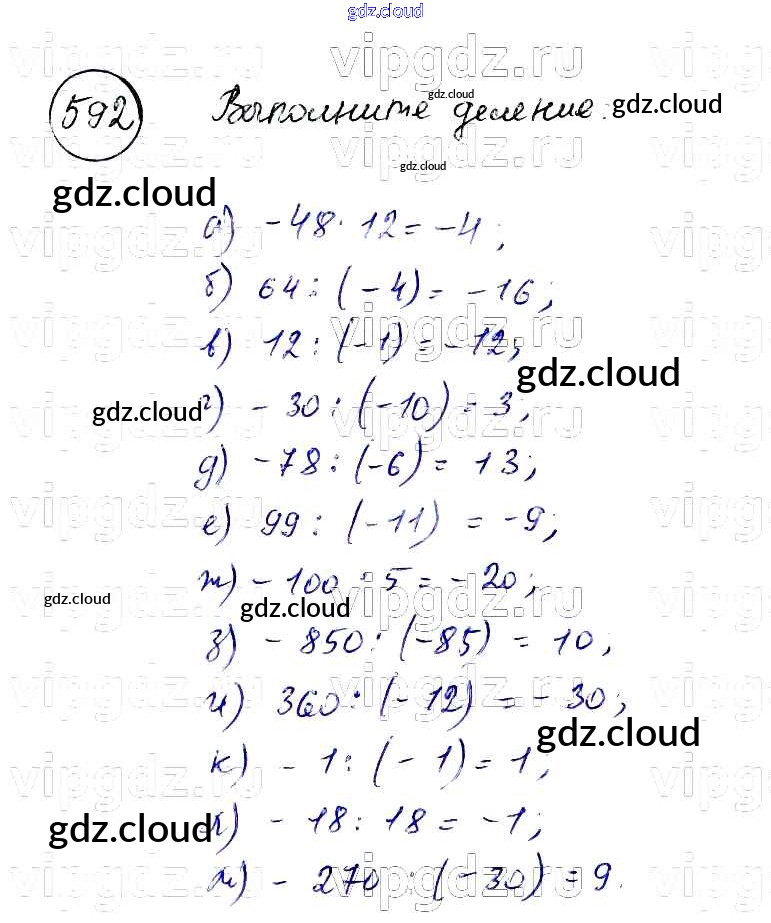 gdz.cloud
vipgdz.ru vipgdz.ru vipgdz.ru
592 Выполните деление:
gdz.cloud
gdz.cloud
gdz.cloud
gdz.cloud
а) -48 : 12 = -4;
б) 64 : (-4) = -16;
в) 12 : (-1) = -12;
gdz.cloud
gdz.cloud
г) -30 : (-10) = 3;
д) -78 : (-6) = 13;
е) 99 : (-11) = -9;
ж) -100 : 5 = -20;
gdz.cloud
gdz.cloud
з) -850 : (-85) = 10;
и) 360 : (-12) = -30;
gdz.cloud
к) -1 : (-1) = 1;
л) -18 : 18 = -1;
gdz.cloud
м) -270 : (-30) = 9.